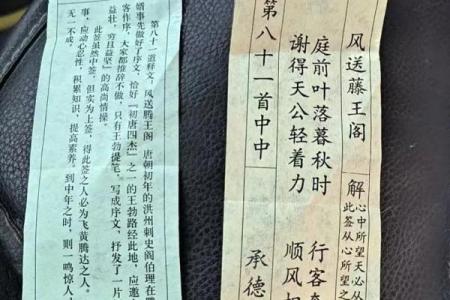 第八十一道释文：风送腾王阁 唐朝初年的洪州刺史阎伯理在
婿事先做好了序文，恰好『初唐四杰』之一的王勃路经此地，应邀
客作序，大家都推辞不做，只有王勃提笔。写成序文，抒发了一片
益壮，穷且益坚』的高尚情操。
此签虽然中签，但实为上签，得此签之人必为飞黄腾达之人。
事，应动心忍性，积累知识，提高素养。到中年之时，则一鸣惊人
无一不成。
风送藤王阁
解
心中所望天必
此签从心所望
庭前叶落暮秋时
行客
谢得天公轻着力
顺风
第八十一首中中
承德